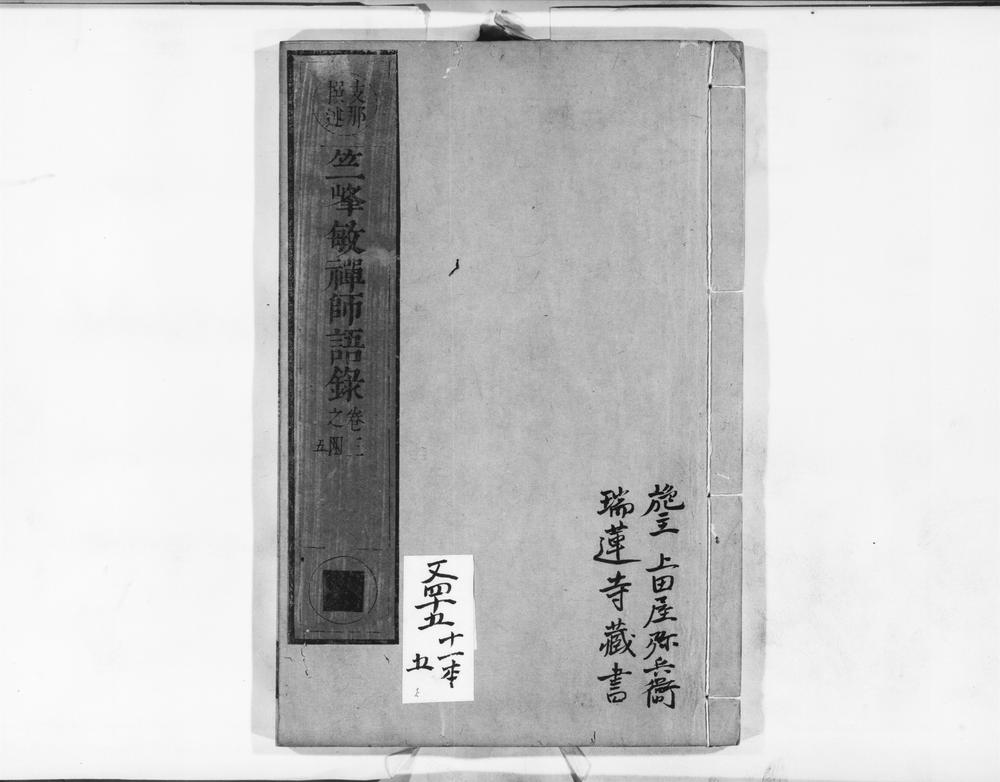 施主 上田屋弥兵衛
瑞蓮寺藏書
支那
撰述
竺峯敏禪師語錄
卷三
之四
五
又四十五
十一本
五